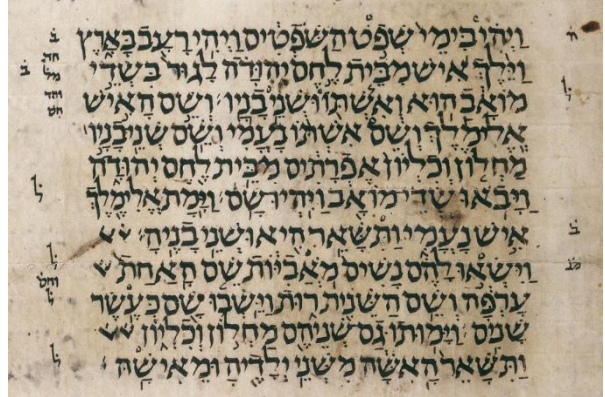 וַיְהִי בִּימֵי שְׁפֹט הַשֹּׁפְטִים וַיְהִי רָעָב בָּאָרֶץ
וַיֵּלֶךְ אִישׁ מִבֵּית לֶחֶם יְהוּדָה לָגוּר בִּשְׂדֵי
מוֹאָב הוּא וְאִשְׁתּוֹ וּשְׁנֵי בָנָיו׃ וְשֵׁם הָאִישׁ
אֱלִימֶלֶךְ וְשֵׁם אִשְׁתּוֹ נָעֳמִי וְשֵׁם שְׁנֵי בָנָיו
מַחְלוֹן וְכִלְיוֹן אֶפְרָתִים מִבֵּית לֶחֶם יְהוּדָה
וַיָּבֹאוּ שְׂדֵי מוֹאָב וַיִּהְיוּ שָׁם׃ וַיָּמָת אֱלִימֶלֶךְ
אִישׁ נָעֳמִי וַתִּשָּׁאֵר הִיא וּשְׁנֵי בָנֶיהָ׃
וַיִּשְׂאוּ לָהֶם נָשִׁים מֹאֲבִיּוֹת שֵׁם הָאַחַת
עָרְפָּה וְשֵׁם הַשֵּׁנִית רוּת וַיֵּשְׁבוּ שָׁם כְּעֶשֶׂר
שָׁנִים׃ וַיָּמוּתוּ גַם שְׁנֵיהֶם מַחְלוֹן וְכִלְיוֹן
וַתִּשָּׁאֵר הָאִשָּׁה מִשְּׁנֵי יְלָדֶיהָ וּמֵאִישָׁהּ׃